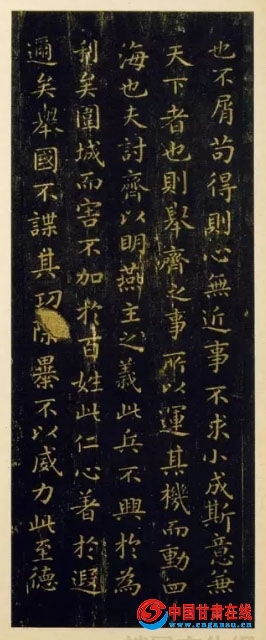 也不屑苟得則心無近事不求小成斯意兼
天下者也則舉齊之事所以運其機而動四
海也夫討齊以明燕王之義此兵不興於為
利矣圍城而害不加於百姓此仁心著於遐
邇矣舉國不謀其功除暴不以威力此至德
中国甘肃在线
www.cngansu.cn